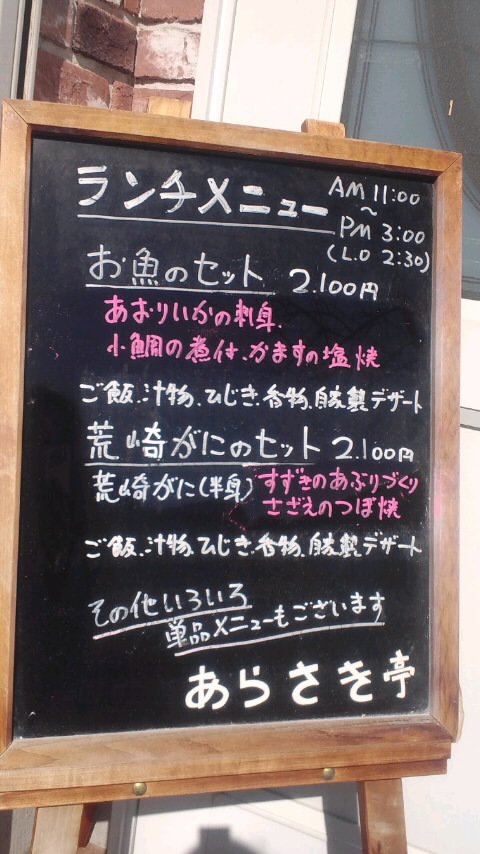 ランチメニュー
AM 11:00
~
PM 3:00
(L.O 2:30)
お魚のセット 2.100円
あおりいかの刺身、
小鯛の煮付、かますの塩焼
ご飯、汁物、ひじき、香物、自家製デザート
荒崎がにのセット 2.100円
荒崎がに(半身) すずきのあぶりづくり
さざえのつぼ焼
ご飯、汁物、ひじき、香物、自家製デザート
その他いろいろ
単品メニューもございます
あらさき亭